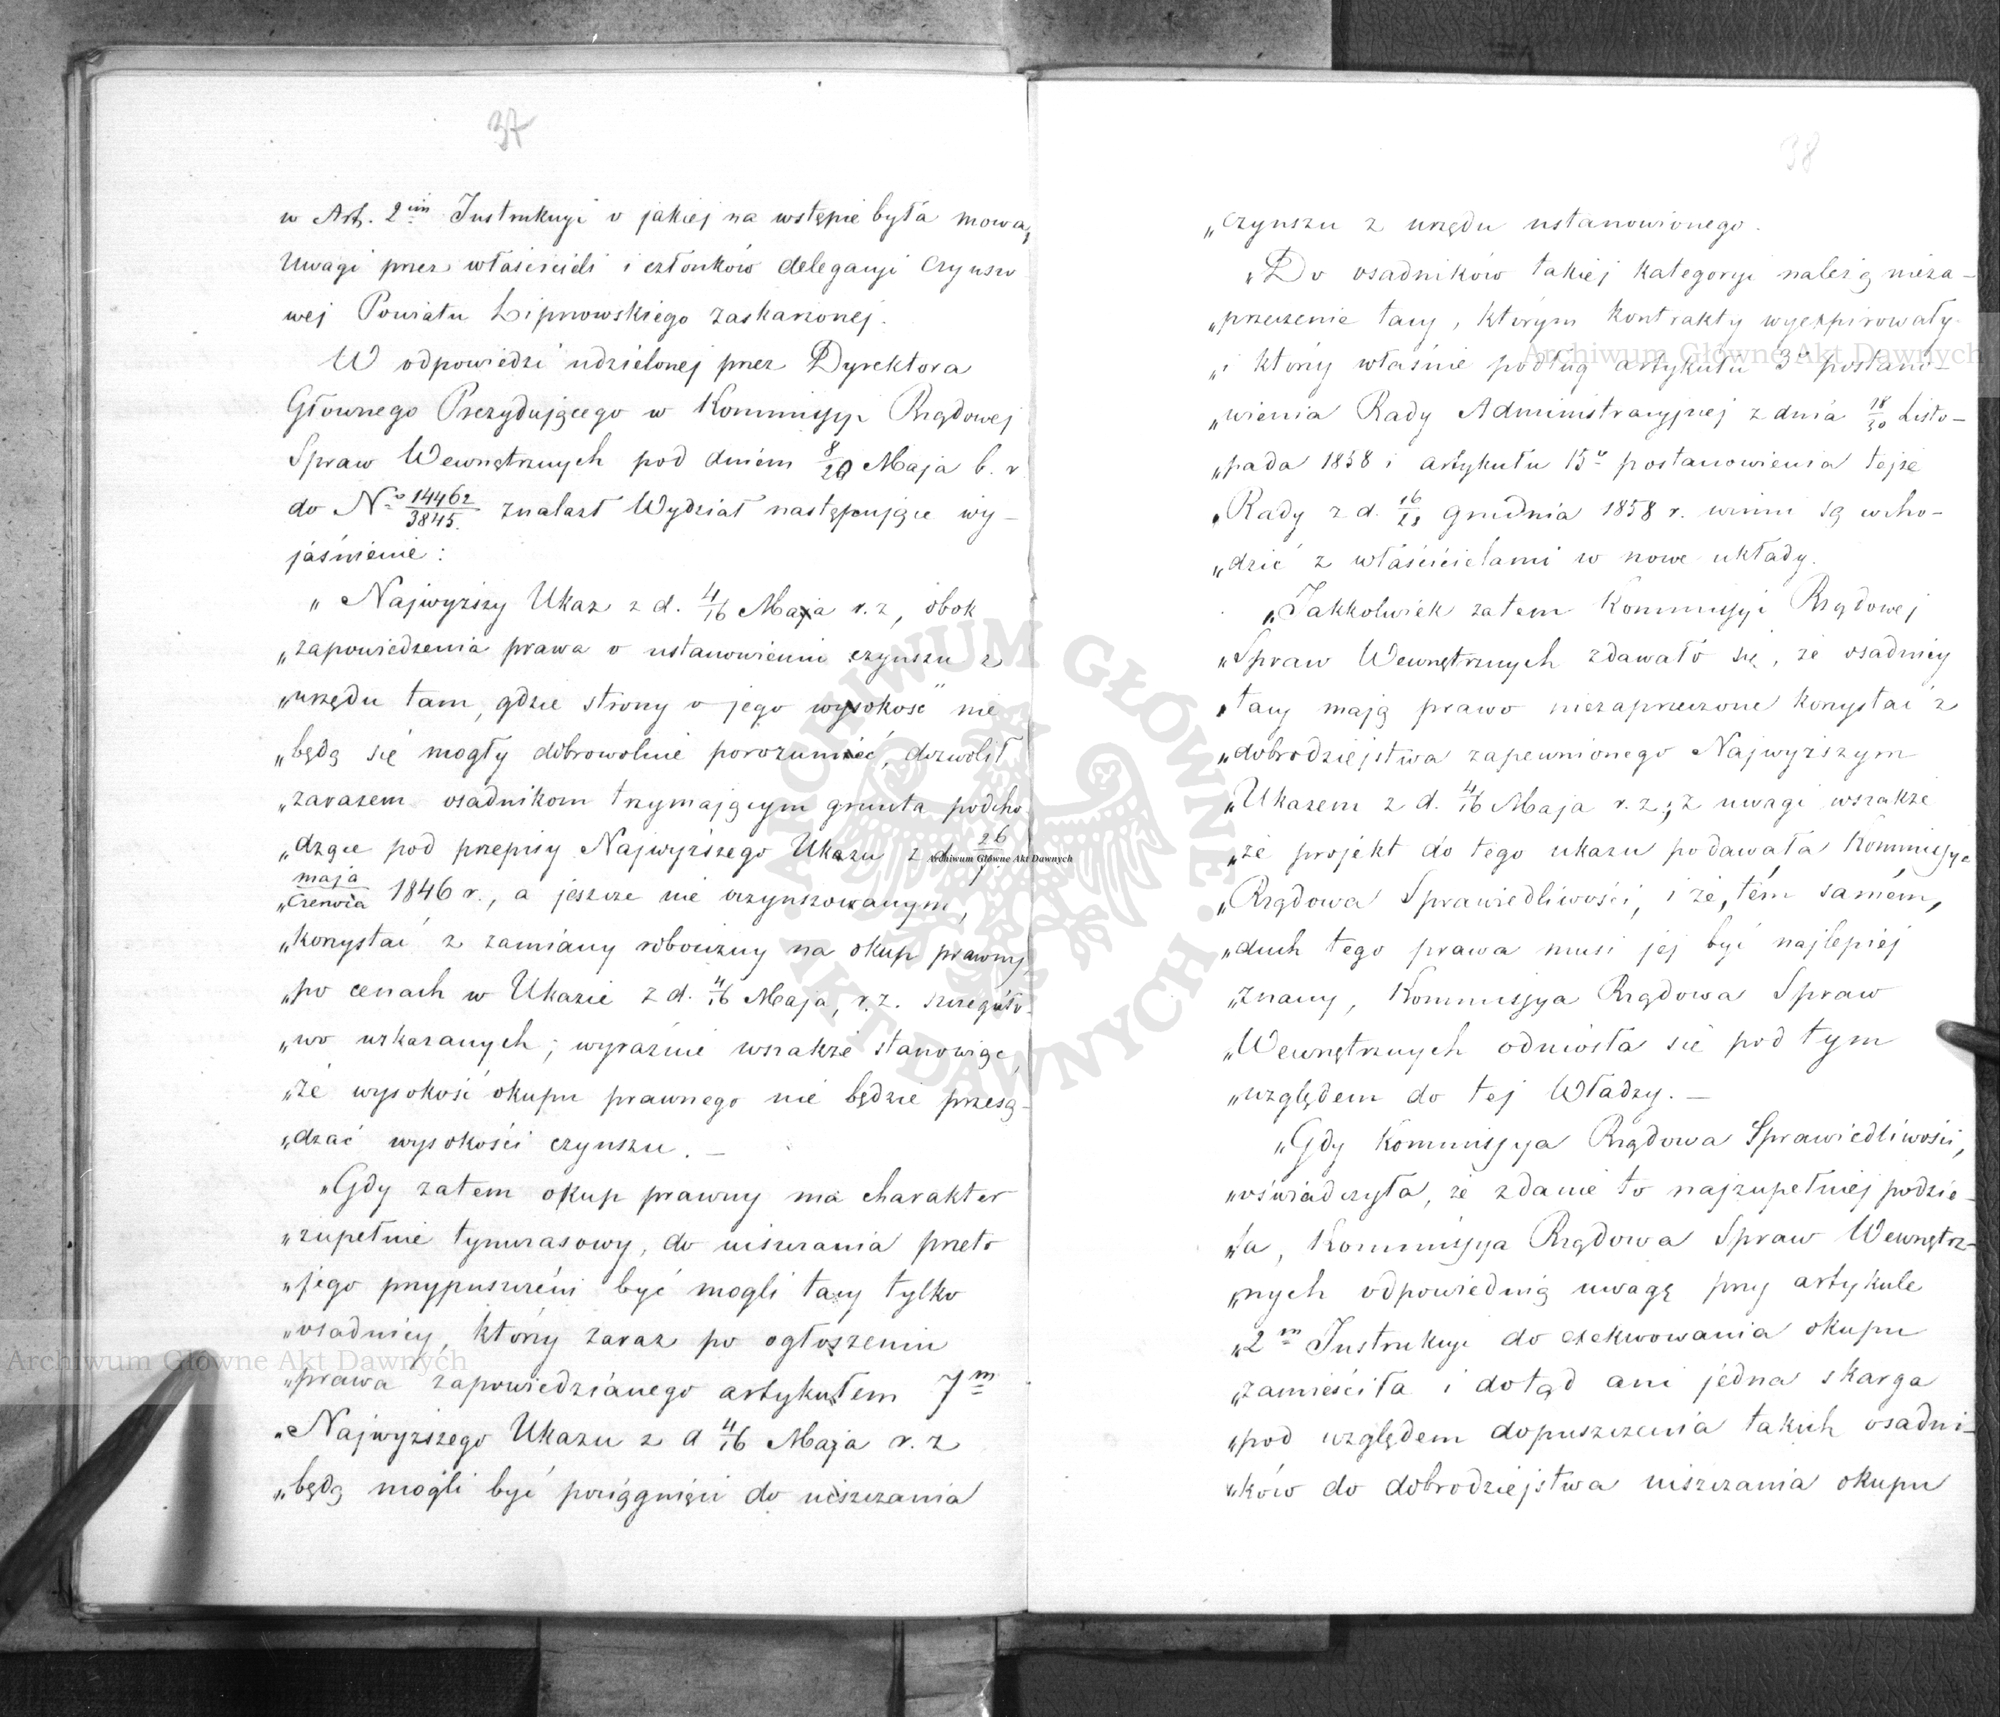 37
w Art. 2im Instrukcyi o jakiej na wstępie była mowa,
Uwagi przez właścicieli i członków delegacyi Czynszo
wej Powiatu Lipnowskiego zaskarżonej.
W odpowiedzi udzielonej przez Dyrektora
Głównego Prezydującego w Kommissyi Rządowej
Spraw Wewnętrznych pod dniem 8/20 Maja b. r.
do No 14462/3845. znalazł Wydział następujące wy-
jaśnienie:
„Najwyższy Ukaz z d. 4/16 Maja r. z, obok
„zapowiedzenia prawa o ustanowieniu czynszu z
„urzędu tam, gdzie strony o jego wysokość nie
„będą się mogły dobrowolnie porozumieć, dozwolił
„zarazem osadnikom trzymającym grunta podcho
„dzące pod przepisy Najwyższego Ukazu z d. 26/7
„maja/Czerwca 1846 r., a jeszcze nie oczynszowanym,
„korzystać z zamiany robocizny na okup prawny,
„po cenach w Ukazie z d. 4/16 Maja, r. z. szczegóło-
„wo wskazanych; wyraźnie wszakże stanowiąc,
„że wysokość okupu prawnego nie będzie przesą-
„dzać wysokości czynszu. —
„Gdy zatem okup prawny ma charakter
„zupełnie tymczasowy, do uiszczania przeto
„jego przypuszczeni być mogli tacy tylko
„osadnicy, którzy zaraz po ogłoszeniu
„prawa zapowiedzianego artykułem 7m
„Najwyższego Ukazu z d 4/16 Maja r. z
„będą mogli być pociągnięci do uiszczania
38
„czynszu z urzędu ustanowionego.
„Do osadników takiej kategoryi należą nieza-
„przeczenie tacy, którym kontrakty wyexpirowały
„i którzy właśnie podług artykułu 3o postano-
„wienia Rady Administracyjnej z dnia 18/30 Listo-
„pada 1858 i artykułu 15o postanowienia tejże
„Rady z d. 16/28 grudnia 1858 r. winni są wcho-
„dzić z właścicielami w nowe układy.
„Jakkolwiek zatem Kommissyi Rządowej
„Spraw Wewnętrznych zdawało się, że osadnicy
„tacy mają prawo niezaprzeczone korzystać z
„dobrodziejstwa zapewnionego Najwyższym
„Ukazem z d. 4/16 Maja r. z.; z uwagi wszakże
„że projekt do tego ukazu podawała Kommissya
„Rządowa Sprawiedliwości, i że, tém samém,
„duch tego prawa musi jej być najlepiej
„znany, Kommissya Rządowa Spraw
„Wewnętrznych odniosła sie pod tym
„względem do tej Władzy. —
„Gdy Kommissya Rządowa Sprawiedliwości,
„oświadczyła, że zdanie to najzupełniej podzie-
„la, Kommissya Rządowa Spraw Wewnętrz-
„nych odpowiednią uwagę przy artykule
„2m Instrukcyi do exekwowania okupu
„zamieściła i dotąd ani jedna skarga
„pod względem dopuszczenia takich osadni-
„ków do dobrodziejstwa uiszczania okupu
Archiwum Główne Akt Dawnych
Archiwum Główne Akt Dawnych
Archiwum Główne Akt Dawnych
ARCHIWUM GŁÓWNE AKT DAWNYCH